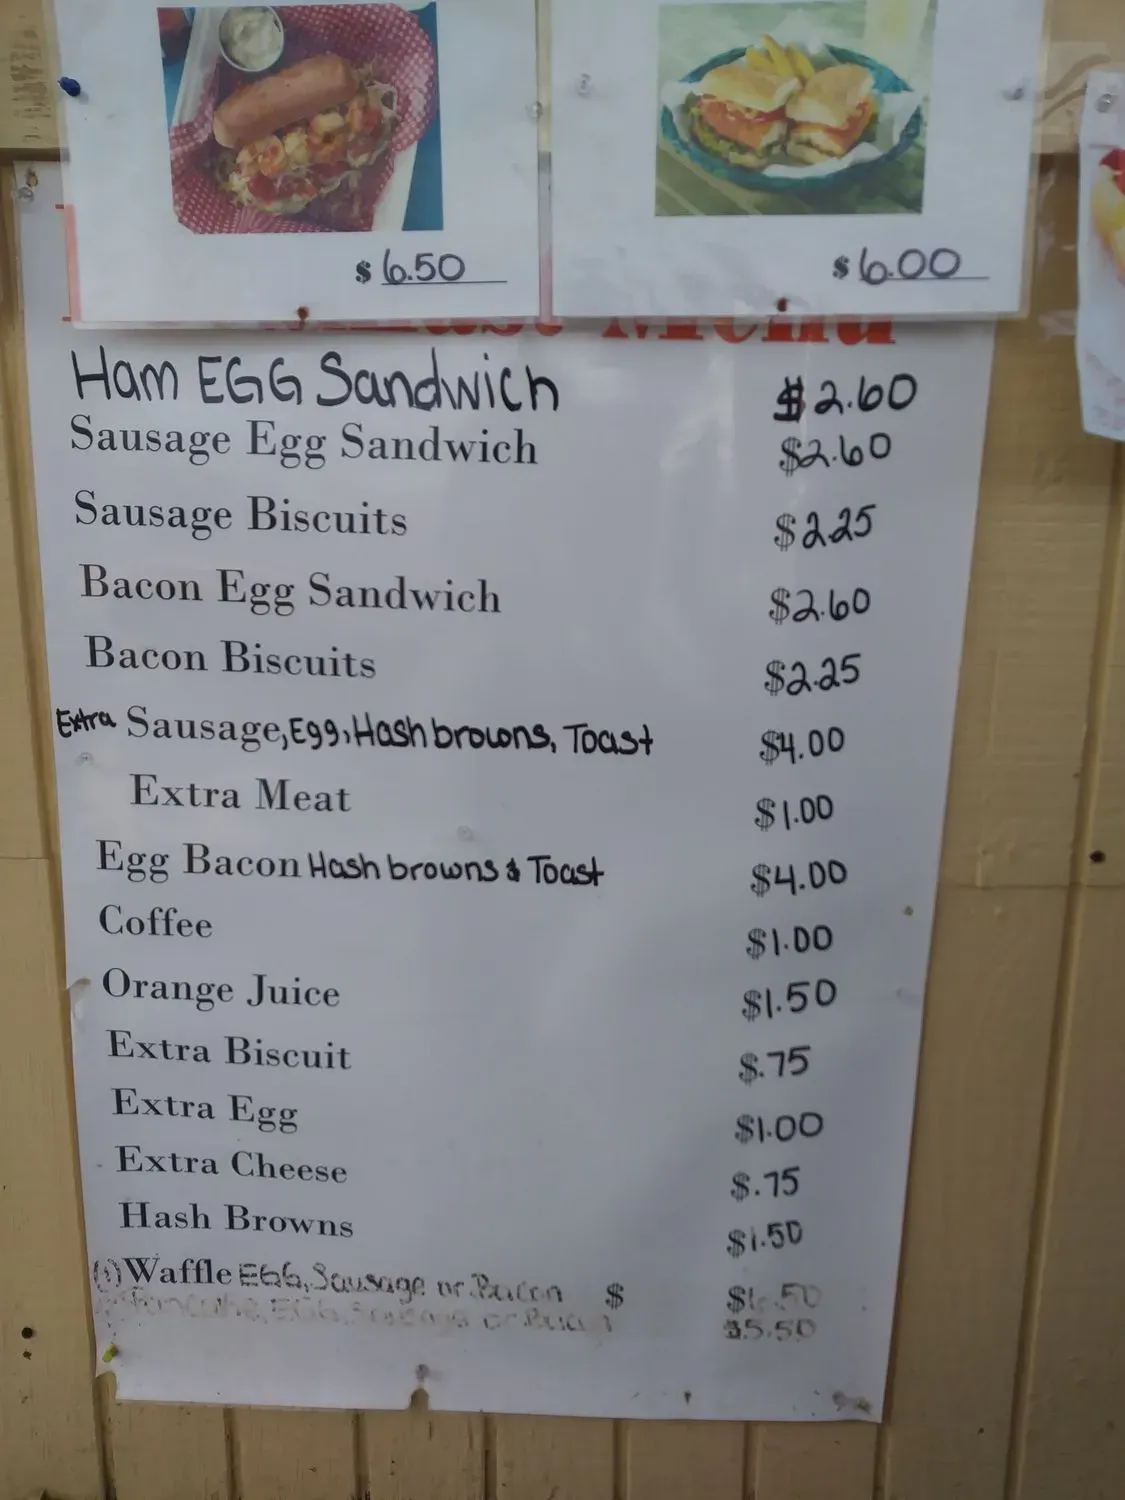 $ 6.50
$ 6.00
Menu
Ham EGG Sandwich $2.60
Sausage Egg Sandwich $2.60
Sausage Biscuits $2.25
Bacon Egg Sandwich $2.60
Bacon Biscuits $2.25
Extra Sausage, Egg, Hash browns, Toast $4.00
Extra Meat $1.00
Egg Bacon Hash browns & Toast $4.00
Coffee $1.00
Orange Juice $1.50
Extra Biscuit $.75
Extra Egg $1.00
Extra Cheese $.75
Hash Browns $1.50
Waffle EGG, Sausage or Bacon $ $6.50
EGG, Sausage or Bacon $5.50